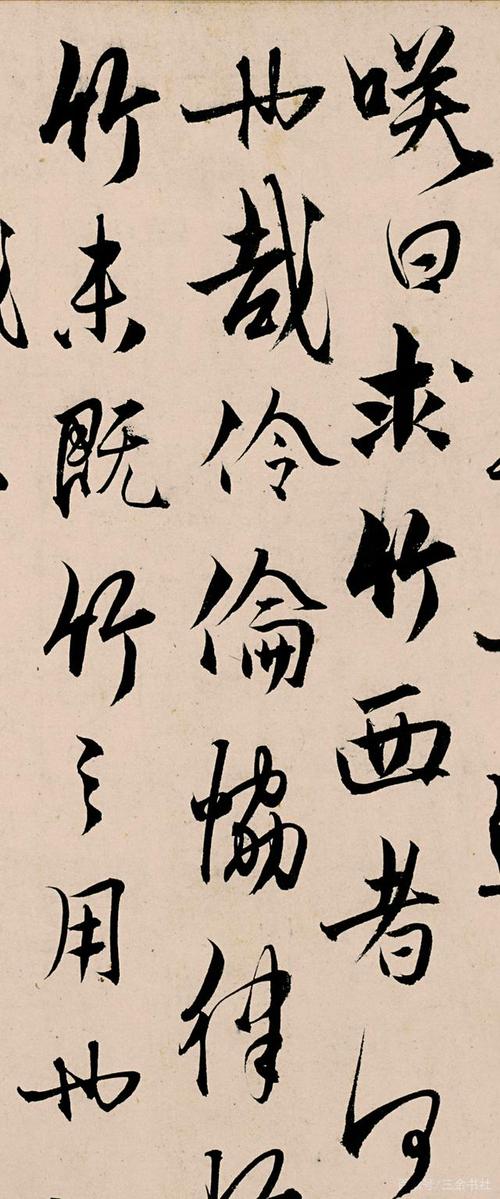 咲曰求竹西者何
也哉伶倫恊律
竹未既竹之用也
三余书社